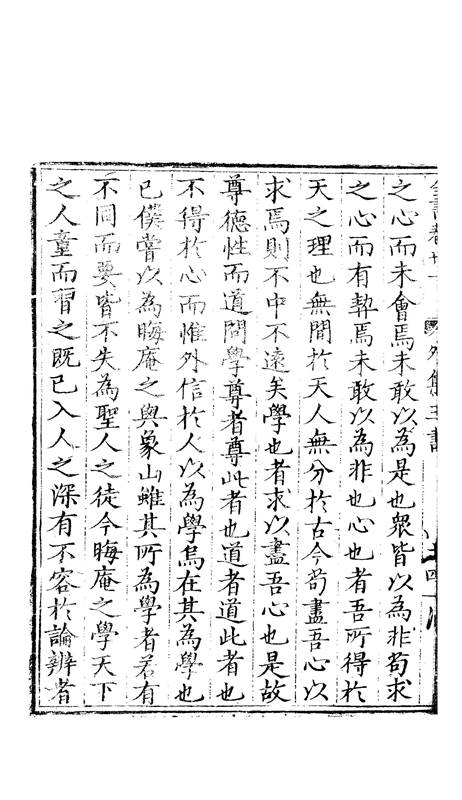 全書卷廿一 外集三 書
之心而未會焉未敢以為是也眾皆以為非苟求
之心而有契焉未敢以為非也心也者吾所得於
天之理也無間於天人無分於古今苟盡吾心以
求焉則不中不遠矣學也者求以盡吾心也是故
尊德性而道問學尊者尊此者也道者道此者也
不得於心而惟外信於人以為學烏在其為學也
已僕嘗以為晦庵之與象山雖其所為學者若有
不同而要皆不失為聖人之徒今晦庵之學天下
之人童而習之既已入人之深有不容於論辨者